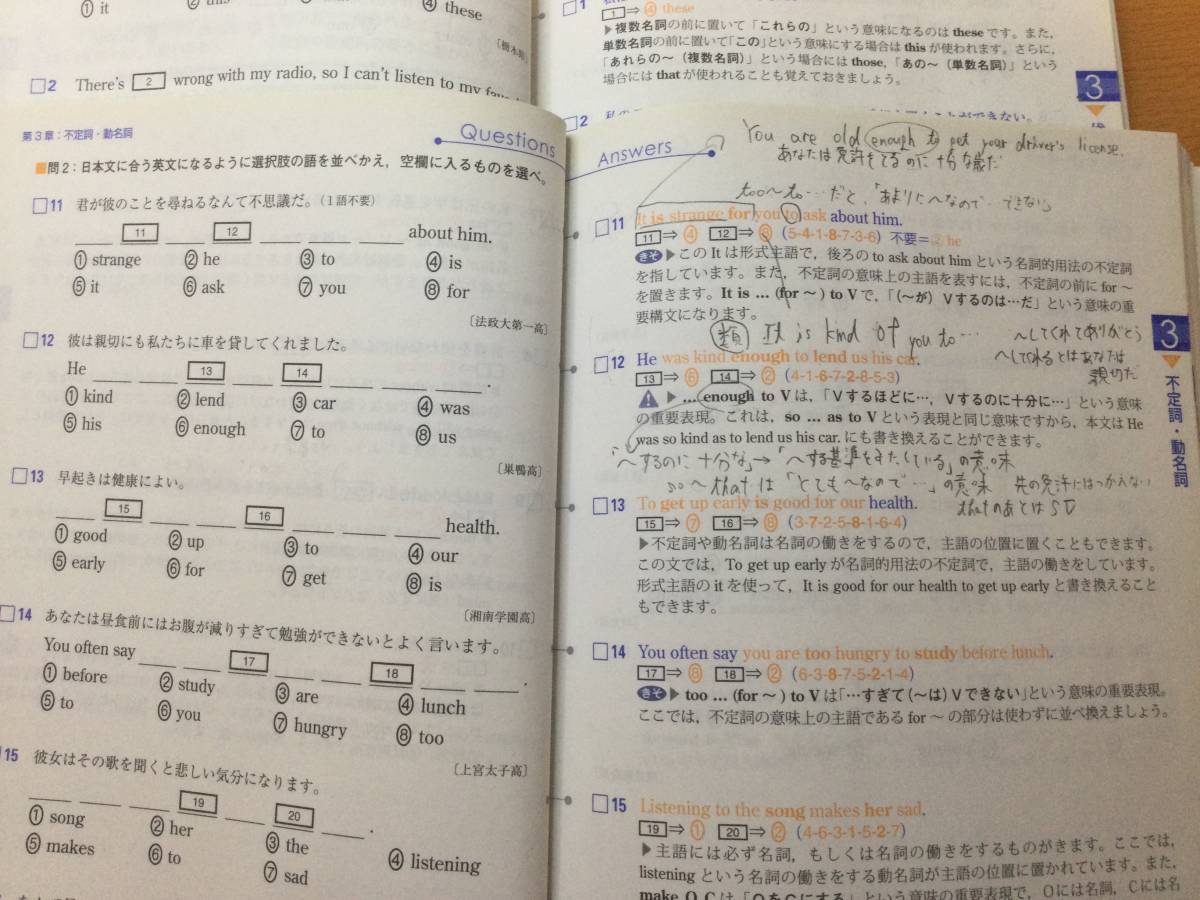 ① it
④ these
〔栃木
□2 There's [2] wrong with my radio, so I can't listen to my
□1
[1]⇒④ these
▶複数名詞の前に置いて「これらの」という意味になるのは these です。また,
単数名詞の前に置いて「この」という意味にする場合は this が使われます。さらに,
「あれらの〜（複数名詞）」という場合には those,「あの〜（単数名詞）」という
場合には that が使われることも覚えておきましょう。
3
□2
第3章：不定詞・動名詞
Questions
■問2：日本文に合う英文になるように選択肢の語を並べかえ，空欄に入るものを選べ。
□11 君が彼のことを尋ねるなんて不思議だ。（1語不要）
___ [11] ___ [12] ___ ___ ___ about him.
① strange ② he ③ to ④ is
⑤ it ⑥ ask ⑦ you ⑧ for
〔法政大第一高〕
□12 彼は親切にも私たちに車を貸してくれました。
He ___ ___ [13] ___ [14] ___ ___ ___.
① kind ② lend ③ car ④ was
⑤ his ⑥ enough ⑦ to ⑧ us
〔巣鴨高〕
□13 早起きは健康によい。
___ [15] ___ ___ [16] ___ ___ ___ health.
① good ② up ③ to ④ our
⑤ early ⑥ for ⑦ get ⑧ is
〔湘南学園高〕
□14 あなたは昼食前にはお腹が減りすぎて勉強ができないとよく言います。
You often say ___ ___ [17] ___ ___ [18] ___ ___.
① before ② study ③ are ④ lunch
⑤ to ⑥ you ⑦ hungry ⑧ too
〔上宮太子高〕
15 彼女はその歌を聞くと悲しい気分になります。
___ ___ ___ [19] ___ [20] ___.
① song ② her ③ the ④ listening
⑤ makes ⑥ to ⑦ sad
Answers
You are old enough to get your driver's license.
あなたは免許をとるのに十分な歳だ
too〜to…だと、「あまりに〜なので…できない」
□11 It is strange for you to ask about him.
[11]⇒④ [12]⇒⑧ (5-4-1-8-7-3-6) 不要＝② he
きそ ▶この It は形式主語で，後ろの to ask about him という名詞的用法の不定詞
を指しています。また，不定詞の意味上の主語を表すには，不定詞の前に for 〜
を置きます。It is … (for 〜) to V で,「（〜が）V するのは…だ」という意味の重
要構文になります。
類 It is kind of you to …
〜してくれてありがとう
〜してくれるとはあなたは
親切だ
□12 He was kind enough to lend us his car.
[13]⇒⑥ [14]⇒② (4-1-6-7-2-8-5-3)
▶ … enough to V は,「V するほどに…，V するのに十分に…」という意味
の重要表現。これは，so … as to V という表現と同じ意味ですから，本文は He
was so kind as to lend us his car. にも書き換えることができます。
「〜するのに十分な」→「〜する基準をみたしている」の意味
so〜that は「とても〜なので…」の意味 先の免許にはつかえない
thatのあとはSV
□13 To get up early is good for our health.
[15]⇒⑦ [16]⇒⑧ (3-7-2-5-8-1-6-4)
▶不定詞や動名詞は名詞の働きをするので，主語の位置に置くこともできます。
この文では，To get up early が名詞的用法の不定詞で，主語の働きをしています。
形式主語の it を使って，It is good for our health to get up early と書き換えること
もできます。
□14 You often say you are too hungry to study before lunch.
[17]⇒⑧ [18]⇒② (6-3-8-7-5-2-1-4)
きそ ▶ too … (for 〜) to V は「…すぎて（〜は）V できない」という意味の重要表現。
ここでは，不定詞の意味上の主語である for 〜 の部分は使わずに並べ換えましょう。
□15 Listening to the song makes her sad.
[19]⇒① [20]⇒② (4-6-3-1-5-2-7)
▶主語には必ず名詞，もしくは名詞の働きをするものがきます。ここでは，
listening という名詞の働きをする動名詞が主語の位置に置かれています。また，
make O C は「O を C にする」という意味の重要表現で，O には名詞，C には名
3
不定詞・動名詞